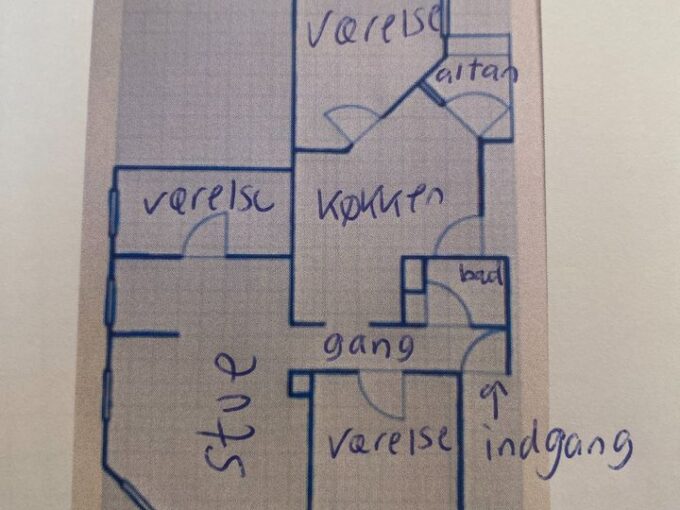 værelse
altan
værelse
køkken
bad
gang
stue
værelse
indgang